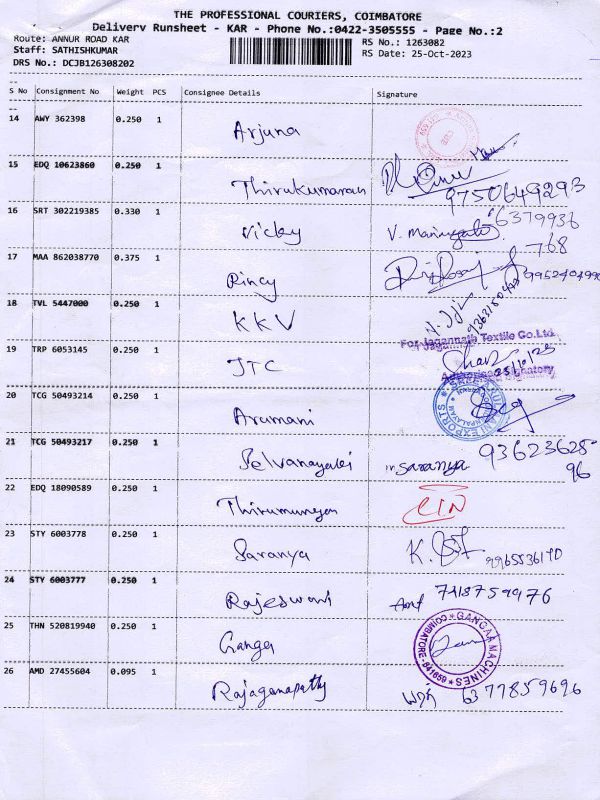 THE PROFESSIONAL COURIERS, COIMBATORE
Delivery Runsheet - KAR - Phone No.:0422-3505555 - Page No.:2
Route: ANNUR ROAD KAR
RS No.: 1263082
Staff: SATHISHKUMAR
RS Date: 25-Oct-2023
DRS No.: DCJB126308202
S No Consignment No Weight PCS Consignee Details Signature
14 AWY 362398 0.250 1 Arjuna
15 EDQ 10623860 0.250 1 Thirukumaran 9750649293
16 SRT 302219385 0.330 1 Vicky V. 6379936
768
17 MAA 862038770 0.375 1 Rincy
18 TVL 5447000 0.250 1 KKV
For Jagannath Textile Co.Ltd.
19 TRP 6053145 0.250 1 JTC 25/10/23
Authorised Signatory
20 TCG 50493214 0.250 1 Arumani
21 TCG 50493217 0.250 1 Selvanayaki Saranya 93623628
96
22 EDQ 18090589 0.250 1 Thirumurugan
23 STY 6003778 0.250 1 Saranya K.
24 STY 6003777 0.250 1 Rajeswari
25 THN 520819940 0.250 1 Ganga GANGAA MACHINES COIMBATORE-641659
26 AMD 27455604 0.095 1 Rajaganapathy 6377859696